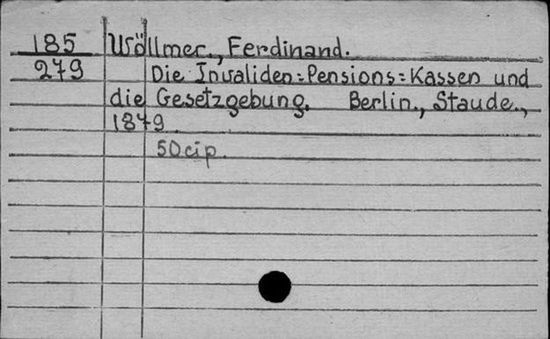 185 Wöllmer., Ferdinand.
279 Die Invaliden=Pensions=Kassen und
die Gesetzgebung. Berlin., Staude.,
1879
50cip.